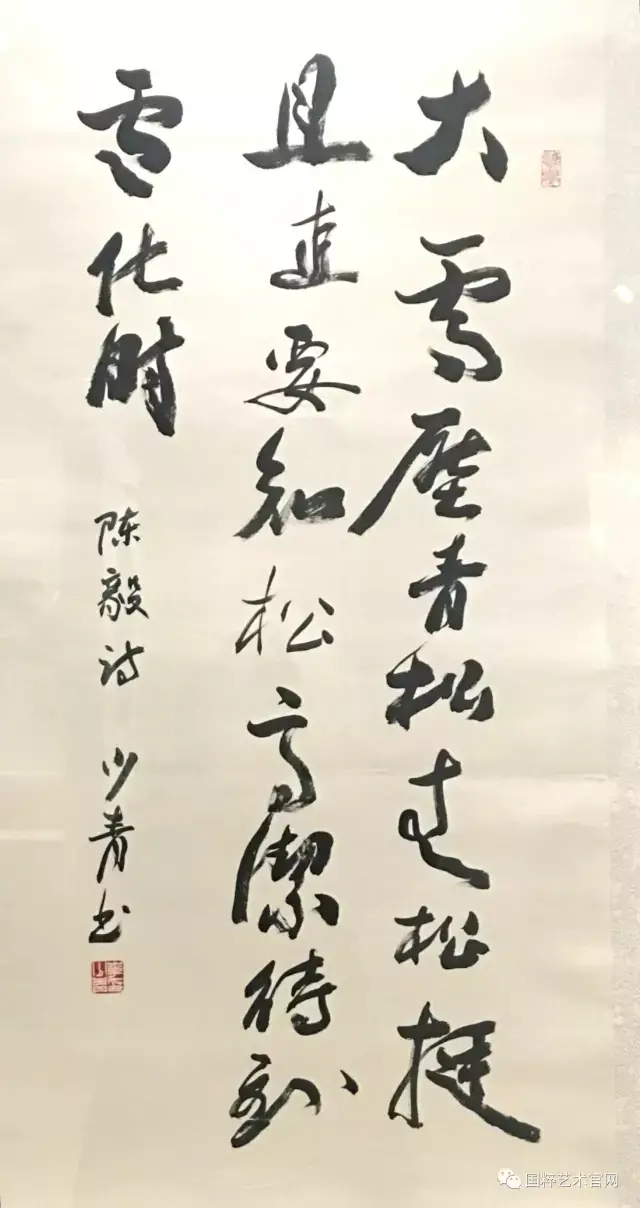 大雪壓青松青松挺
且直要知松高潔待到
雪化时
陈毅诗 少青书
国粹艺术官网